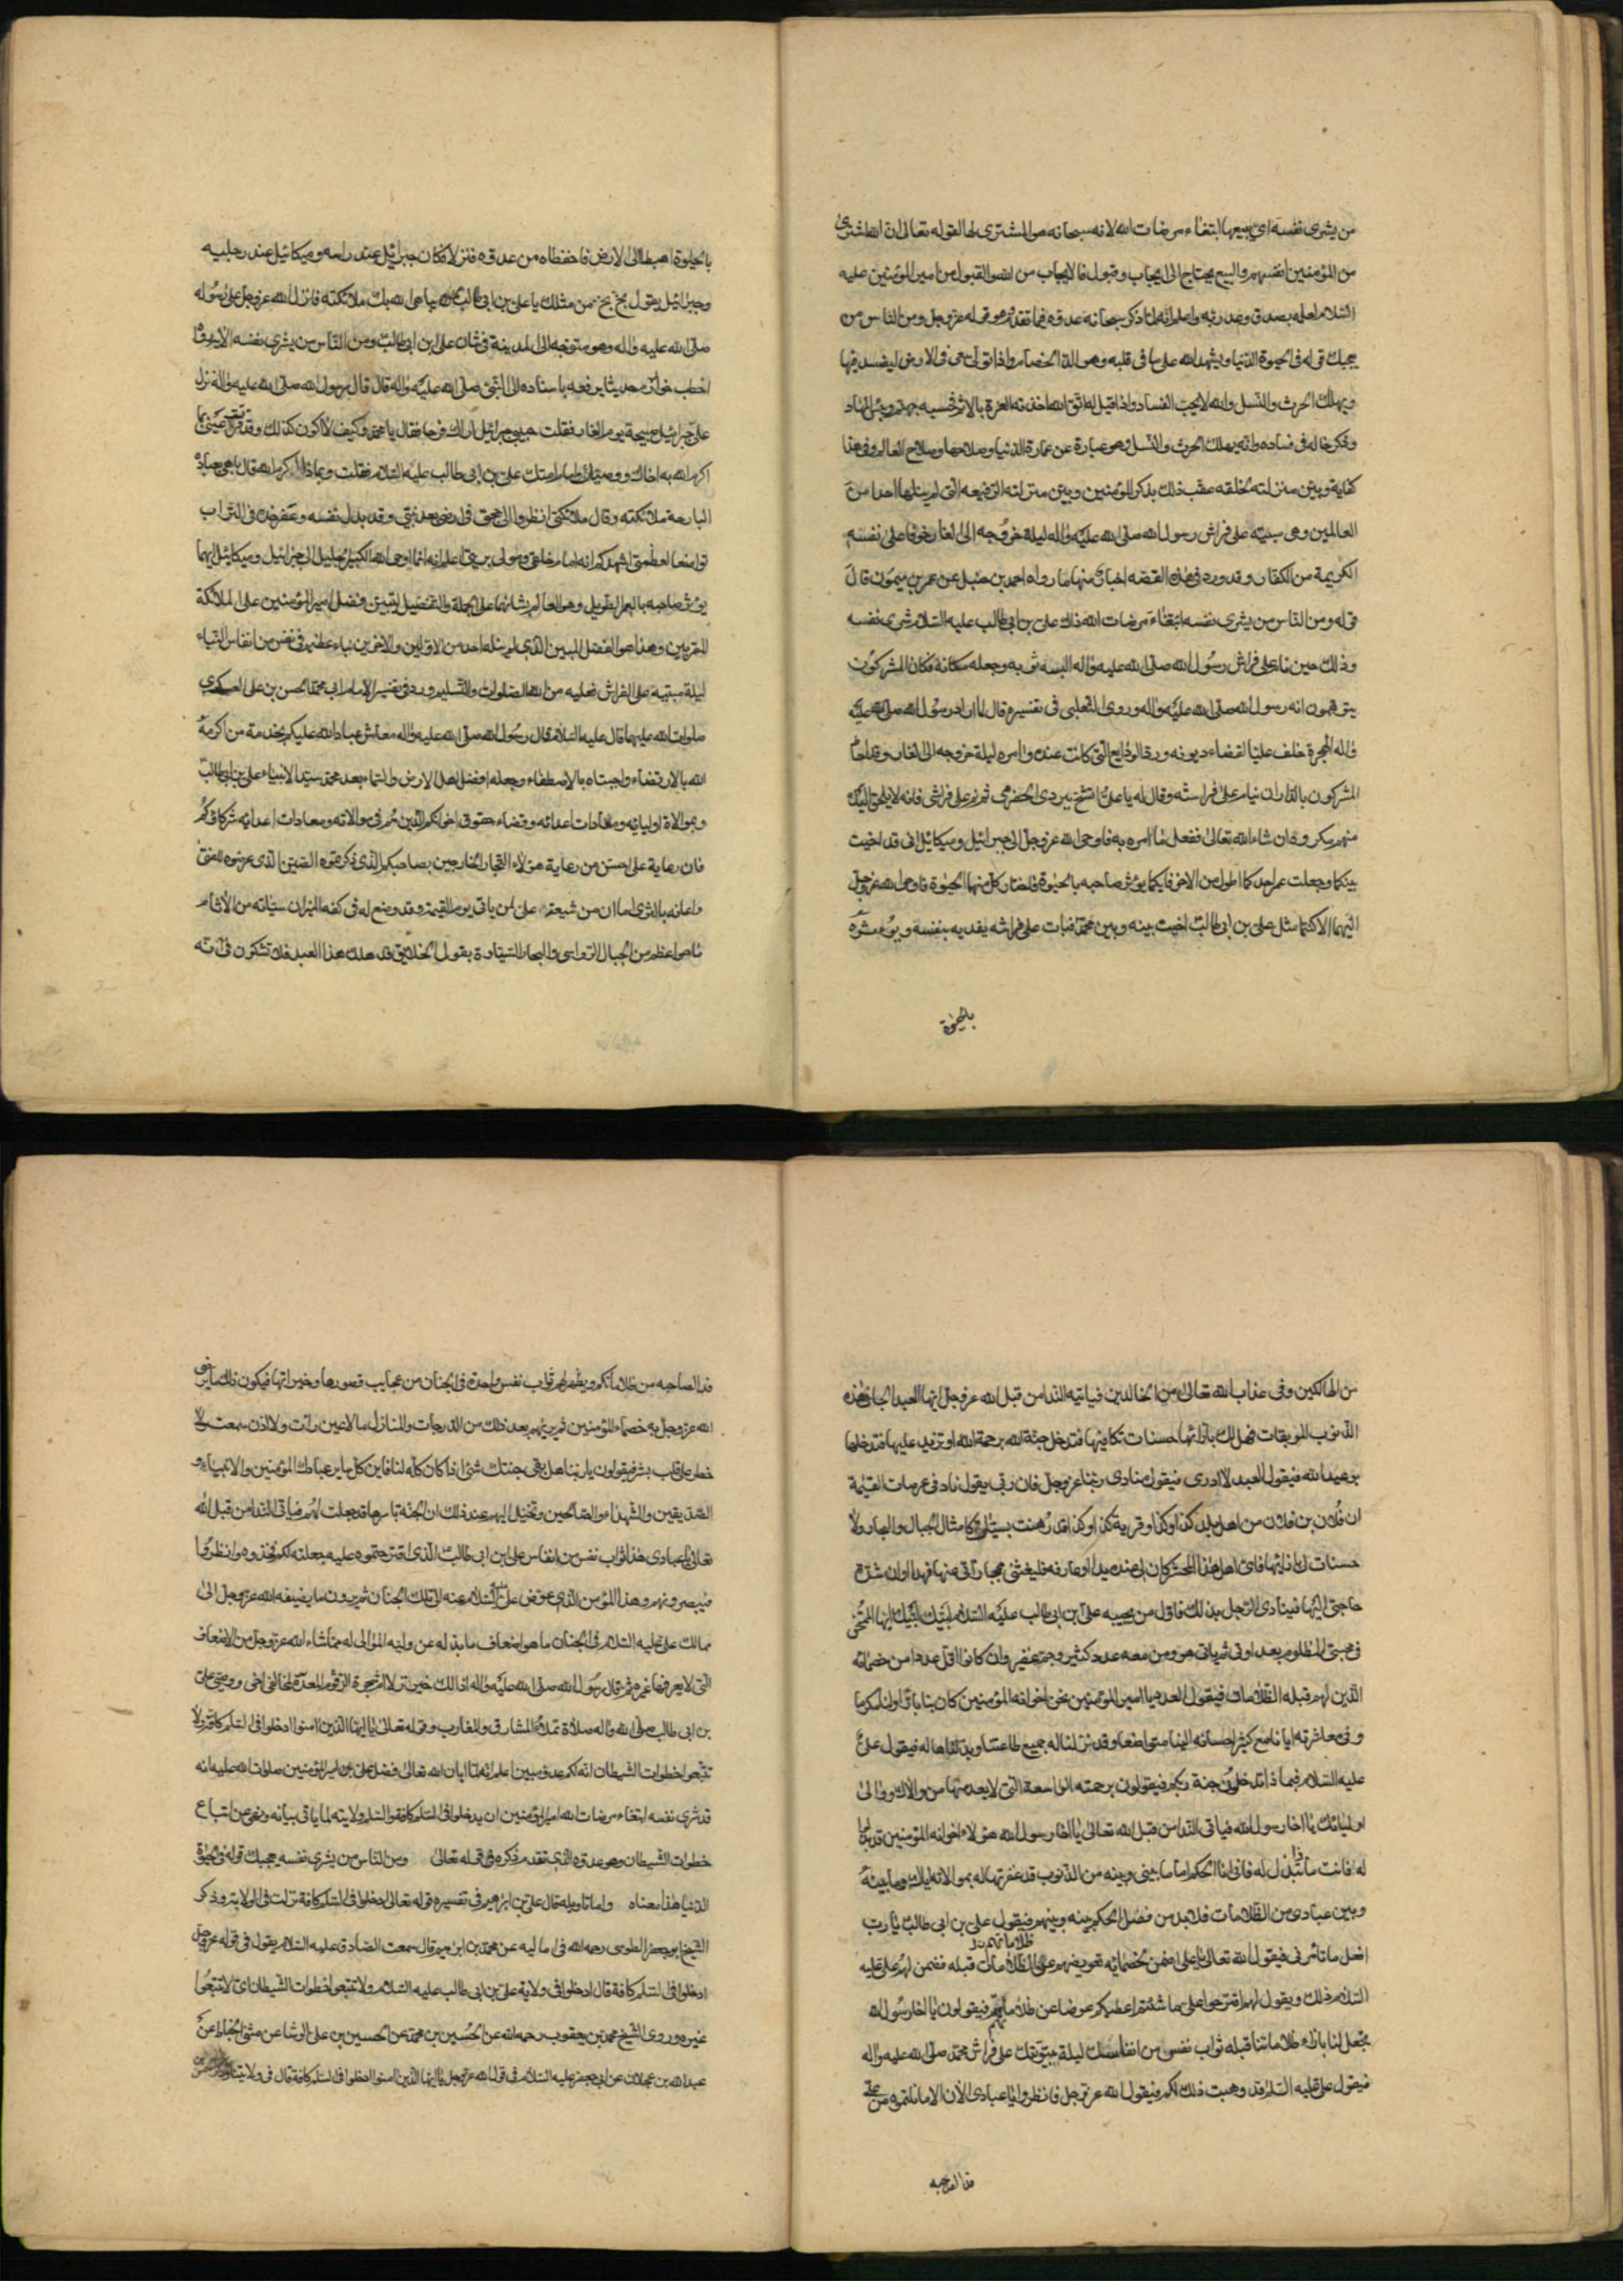 من يشرى نفسه اى يبيعها ابتغاء مرضات الله لانه سبحانه هو المشترى لها لقوله تعالى ان الله اشترى
من المؤمنين انفسهم والبيع يحتاج الى ايجاب وقبول فالايجاب من الله والقبول من امير المؤمنين عليه
السلام لعلمه بصدق وعد ربه واعلم انه لما ذكر سبحانه عدوه فيما تقدم وهو قوله عز وجل ومن الناس من
يعجبك قوله فى الحيوة الدنيا ويشهد الله على ما فى قلبه وهو الد الخصام واذا تولى سعى فى الارض ليفسد فيها
ويهلك الحرث والنسل والله لا يحب الفساد واذا قيل له اتق الله اخذته العزة بالاثم فحسبه جهنم وبئس المهاد
وذكر حاله فى فساده وانه يهلك الحرث والنسل وهو عبارة عن عمارة الدنيا وصلاحها وصلاح العالم وفى هذا
كفاية وبين منزلته لخلقه عقب ذلك بذكر المؤمنين وبين منزلته الرفيعه التى لم ينلها احدا من
العالمين وهى مبيته على فراش رسول الله صلى الله عليه واله ليلة خروجه الى الغار خوفا على نفسه
الكريمة من الكفار وقد ورد فى هذه القصه اخبار منها ما رواه احمد بن حنبل عن عمر بن ميمون قال
قوله ومن الناس من يشرى نفسه ابتغاء مرضات الله ذلك على بن ابى طالب عليه السلام شرى نفسه
وذلك حين نام على فراش رسول الله صلى الله عليه واله البسه ثوبه وجعله مكانه فكان المشركون
يتوهمون انه رسول الله صلى الله عليه واله وروى الثعلبى فى تفسيره قال لما اراد رسول الله صلى الله عليه
واله الهجرة خلف عليا لقضاء ديونه ورد الودايع التى كانت عنده وامره ليلة خروجه الى الغار وقد احاط
المشركون بالدار ان نيام على فراشه وقال له يا على اتشح ببردى الحضرمى ثم نم على فراشى فانه لا يلحق اليك
منهم مكروه ان شاء الله تعالى ففعل ما امره به فاوحى الله عز وجل الى جبرائيل وميكائيل انى قد اخيت
بينكما وجعلت عمر احدكما اطول من الاخر فايكما يؤثر صاحبه بالحيوة فاختار كل منهما الحيوة فاوحى الله عز وجل
اليهما الا كنتما مثل على بن ابى طالب اخيت بينه وبين محمد فبات على فراشه يفديه بنفسه ويؤثره
بالحيوة
بالحيوة اهبطا الى الارض فاحفظاه من عدوه فنزلا فكان جبرائيل عند راسه وميكائيل عند رجليه
وجبرائيل يقول بخ بخ من مثلك يا على بن ابى طالب يباهى الله بك ملائكته فانزل الله عز وجل على رسوله
صلى الله عليه واله وهو متوجه الى المدينة فى شان على بن ابى طالب ومن الناس من يشرى نفسه الاية وقد
اخطب خوارزم حديثا يرفعه باسناده الى النبى صلى الله عليه واله قال قال رسول الله صلى الله عليه واله نزل
على جبرائيل صبيحة يوم الغار فقلت حبيبى جبرائيل اراك فرحا فقال يا محمد وكيف لا اكون كذلك وقد قرت عينى بما
اكرم الله به اخاك ووصيك وامام امتك على بن ابى طالب عليه السلام فقلت وبماذا اكرمه الله قال باهى بعبادته
البارحة ملائكته وقال ملائكتى انظروا الى حجتى فى ارضى بعد نبيى وقد بذل نفسه وعفر خده فى التراب
تواضعا لعظمتى اشهدكم انه امام خلقى ومولى بريتى اعلم انه انما اوحى الله الكبير الجليل الى جبرائيل وميكائيل ايهما
يؤثر صاحبه بالعمر الطويل وهو العالم بشانهما على الجملة والتفصيل ليتبين فضل امير المؤمنين على الملائكة
المقربين وهذا هو الفضل المبين الذى لم ينله احد من الاولين والاخرين نباء عظيم فى نفس من انفاس النباء
ليلة مبيته على الفراش فعليه من الله الصلوات والتسليم وورد فى تفسير الامام ابى محمد الحسن بن على العسكرى
صلوات الله عليهما قال عليه السلام قال رسول الله صلى الله عليه واله معاشر عباد الله عليكم بخدمة من اكرمه
الله بالارتضاء واجتباه بالاصطفاء وجعله افضل اهل الارض والسماء بعد محمد سيد الانبياء على بن ابى طالب
وبموالاة اوليائه ومعادات اعدائه وقضاء حقوق اخوانكم الذين هم فى موالاته ومعادات اعدائه شركاؤكم
فان رعاية على احسن من رعاية هؤلاء التجار الخارجين بصاحبكم الذى ذكرتموه الى الصين الذى عرضوه للغنى
واعانوه بالثرى اما ان من شيعة على لمن ياتى يوم القيمة وقد وضع له فى كفه الميزان سيئاته من الاثام
ما هو اعظم من الجبال الرواسى والبحار السيتارة يقول الخلايق قد هلك هذا العبد فلا تشكون فى انه
من الهالكين وفى عذاب الله تعالى من الخالدين فياتيه الندا من قبل الله عز وجل ايها العبد الجانى هذه
الذنوب الموبقات فهل لك بازائها حسنات تكافيها فتدخل جنة الله برحمة الله او تزيد عليها فتدخلها
بوعد الله فيقول العبد لا ادرى فيقول منادى ربنا عز وجل فان ربى يقول ناد فى عرصات القيمة
ان فلان بن فلان من اهل بلد كذا وكذا وقرية كذا وكذا قد رهنت بسيئاتى كامثال الجبال والبحار ولا
حسنات لى بازائها فاى اهل هذا المحشر كان لى عنده يدا او عارفه فليغثنى بمجازاتى عنها فهذا اوان شدة
حاجتى اليها فينادى الرجل بذلك فاول من يجيبه على بن ابى طالب عليه السلام لبيك لبيك ايها الممتحن
فى محبتى المظلوم بعداوتى ثم ياتى هو ومن معه عدد كثير وجم غفير وان كانوا اقل عددا من خصمائه
الذين لهم قبله الظلامات فيقول العدد يا امير المؤمنين نحن اخوانه المؤمنين كان بنا بارا ولنا مكرما
وفى معاشرته ايانا مع كثير احسانه الينا متواضعا وقد نزلنا له جميع طاعتنا وبذلناها له فيقول على
عليه السلام فبماذا تدخلون جنة ربكم فيقولون برحمته الواسعة التى لا يعدمها من والاك ووالى
اوليائك يا اخا رسول الله فياتى الندا من قبل الله تعالى يا اخا رسول الله هؤلاء اخوانه المؤمنين قد بذلوا
له فانت ماذا تبذل له فانى انا الحكم اما ما بينى وبينه من الذنوب قد غفرتها له بموالاته اياك وما بينه
وبين عبادى من الظلامات فلا بد من فصل الحكم بينه وبينهم فيقول على بن ابى طالب يا رب
افعل ما تامرنى فيقول الله تعالى يا على اضمن لخصمائه تعويضهم عن ظلاماتهم قبله فضمن لهم على عليه
السلام ذلك ويقول لهم اقترحوا على بما شئتم اعطيكم عوضا عن ظلاماتهم فيقولون يا اخا رسول الله
تجعل لنا بازاء ظلاماتنا قبله ثواب نفس من انفاسك ليلة بيتوتتك على فراش محمد صلى الله عليه واله
فيقول على عليه السلام قد وهبت ذلك لكم فيقول الله عز وجل فانظروا يا عبادى الان الى ما نلتموه من على
فدا لصاحبه
فدا لصاحبه من ظلاماتكم ويظهر لهم ثواب نفس واحدة فى الجنان من عجايب قصورها وخيراتها فيكون ذلك ما يرضى
الله عز وجل به خصماء المؤمنين ثم يريهم بعد ذلك من الدرجات والمنازل ما لا عين رات ولا اذن سمعت ولا
خطر على قلب بشر فيقولون يا ربنا هل بقى جنتك شئ اذا كان كله لنا فاين كل ساير عبادك المؤمنين والانبياء و
الصديقين والشهداء والصالحين ويخيل اليهم عند ذلك ان الجنة باسرها قد جعلت لهم فياتى الندا من قبل الله
تعالى يا عبادى هذا ثواب نفس من انفاس على بن ابى طالب الذى اقترحتموه عليه جعلته لكم فخذوه وانظروا
فيبصرونهم وهذا المؤمن الذى عوض على عليه السلام عنه الى تلك الجنان ثم يرون ما يضيفه الله عز وجل الى
ممالك على عليه السلام فى الجنان ما هو اضعاف ما بذله عن وليه الموالى له مما شاء الله عز وجل من الاضعاف
التى لا يعرفها غيره ثم قال رسول الله صلى الله عليه واله اذلك خير نزلا ام شجرة الزقوم المعدة لمخالفى اخى ووصيى على
بن ابى طالب صلى الله واله صلاة تملاء المشارق والمغارب وقوله تعالى يا ايها الذين امنوا ادخلوا فى السلم كافة ولا
تتبعوا خطوات الشيطان انه لكم عدو مبين اعلم انه لما ابان الله تعالى فضل على بن امير المؤمنين صلوات الله عليه انه
قد شرى نفسه ابتغاء مرضات الله امر المؤمنين ان يدخلوا فى السلم كافة والسلم ولايته لما ياتى بيانه ونهى عن اتباع
خطوات الشيطان وهو عدوه الذى تقدم ذكره فى قوله تعالى ومن الناس من يشرى نفسه يعجبك قوله فى الحيوة
الدنيا هذا معناه واما تاويله قال على بن ابراهيم فى تفسيره قوله تعالى ادخلوا فى السلم كافة نزلت فى الولاية وذكر
الشيخ ابو جعفر الطوسى رحمه الله فى اماليه عن محمد بن ابراهيم قال سمعت الصادق عليه السلام يقول فى قوله عز وجل
ادخلوا فى السلم كافة قال ادخلوا فى ولاية على بن ابى طالب عليه السلام ولا تتبعوا خطوات الشيطان اى لا تتبعوا
غيره وروى الشيخ محمد بن يعقوب رحمه الله عن الحسين بن محمد عن الحسين بن على الوشا عن مثنى الحناط عن
عبد الله بن عجلان عن ابى جعفر عليه السلام فى قول الله عز وجل يا ايها الذين امنوا ادخلوا فى السلم كافة قال فى ولايتنا